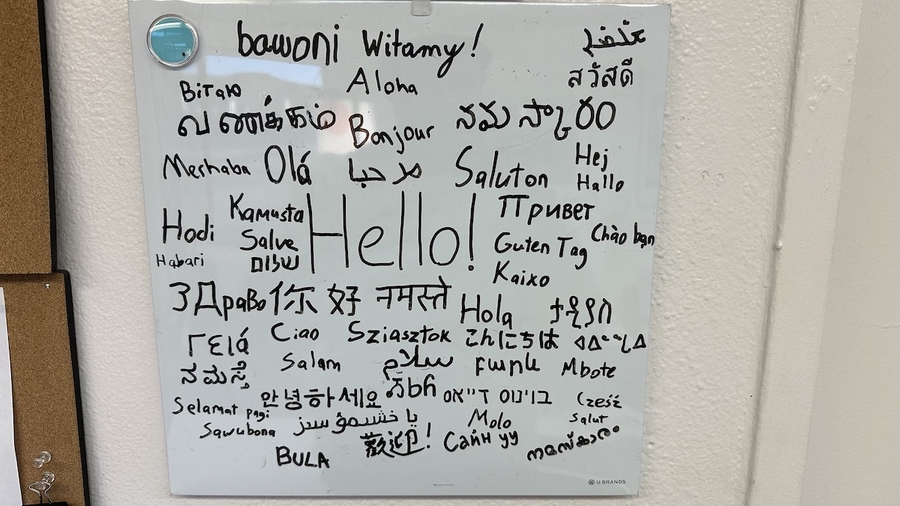 bawoni Witamy!
Вітаю Aloha สวัสดี
வணக்கம் Bonjour నమస్కారం
Merhaba Olá مرحبا Saluton Hej
Hallo
Hodi Kamusta Hello! Привет
Salve Guten Tag Chào bạn
Habari שלום Kaixo
Здраво 你好 नमस्ते Hola
Γειά Ciao Sziasztok こんにちは
ನಮಸ್ತೆ Salam سلام Mbote
안녕하세요 Cześć
Selamat pagi Molo Salut
Sawubona 歡迎! Сайн уу
BULA
U BRANDS